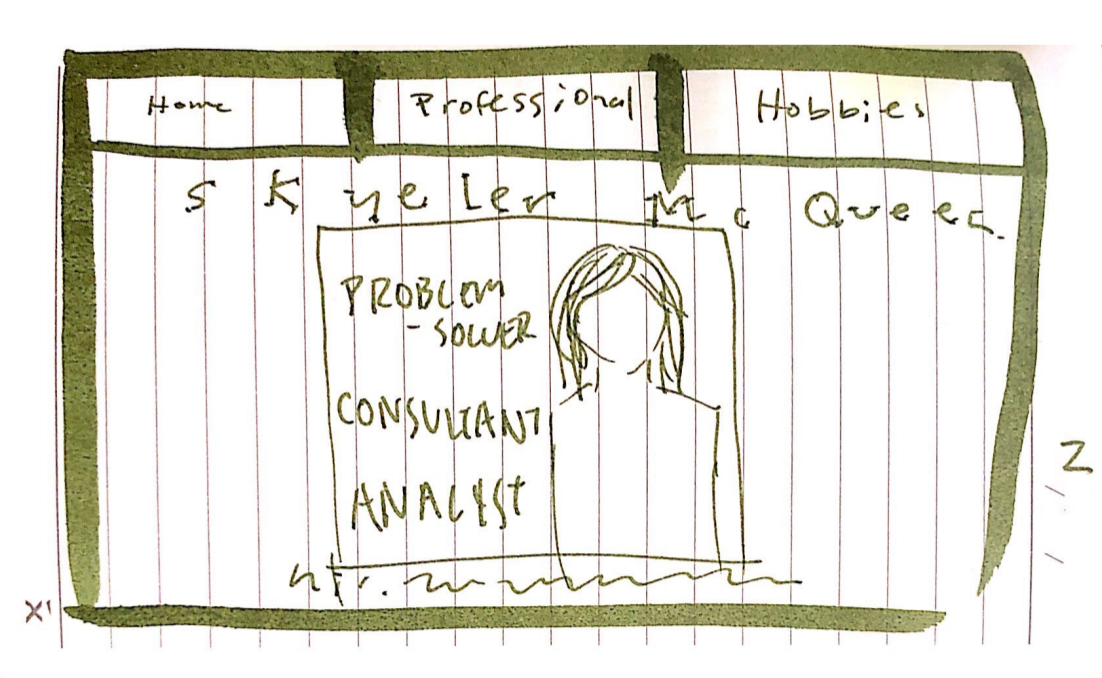 Home Professional Hobbies
SKyeLer Mc Queen
PROBLEM
-SOLVER
CONSULTANT
ANALYST
X'
Z